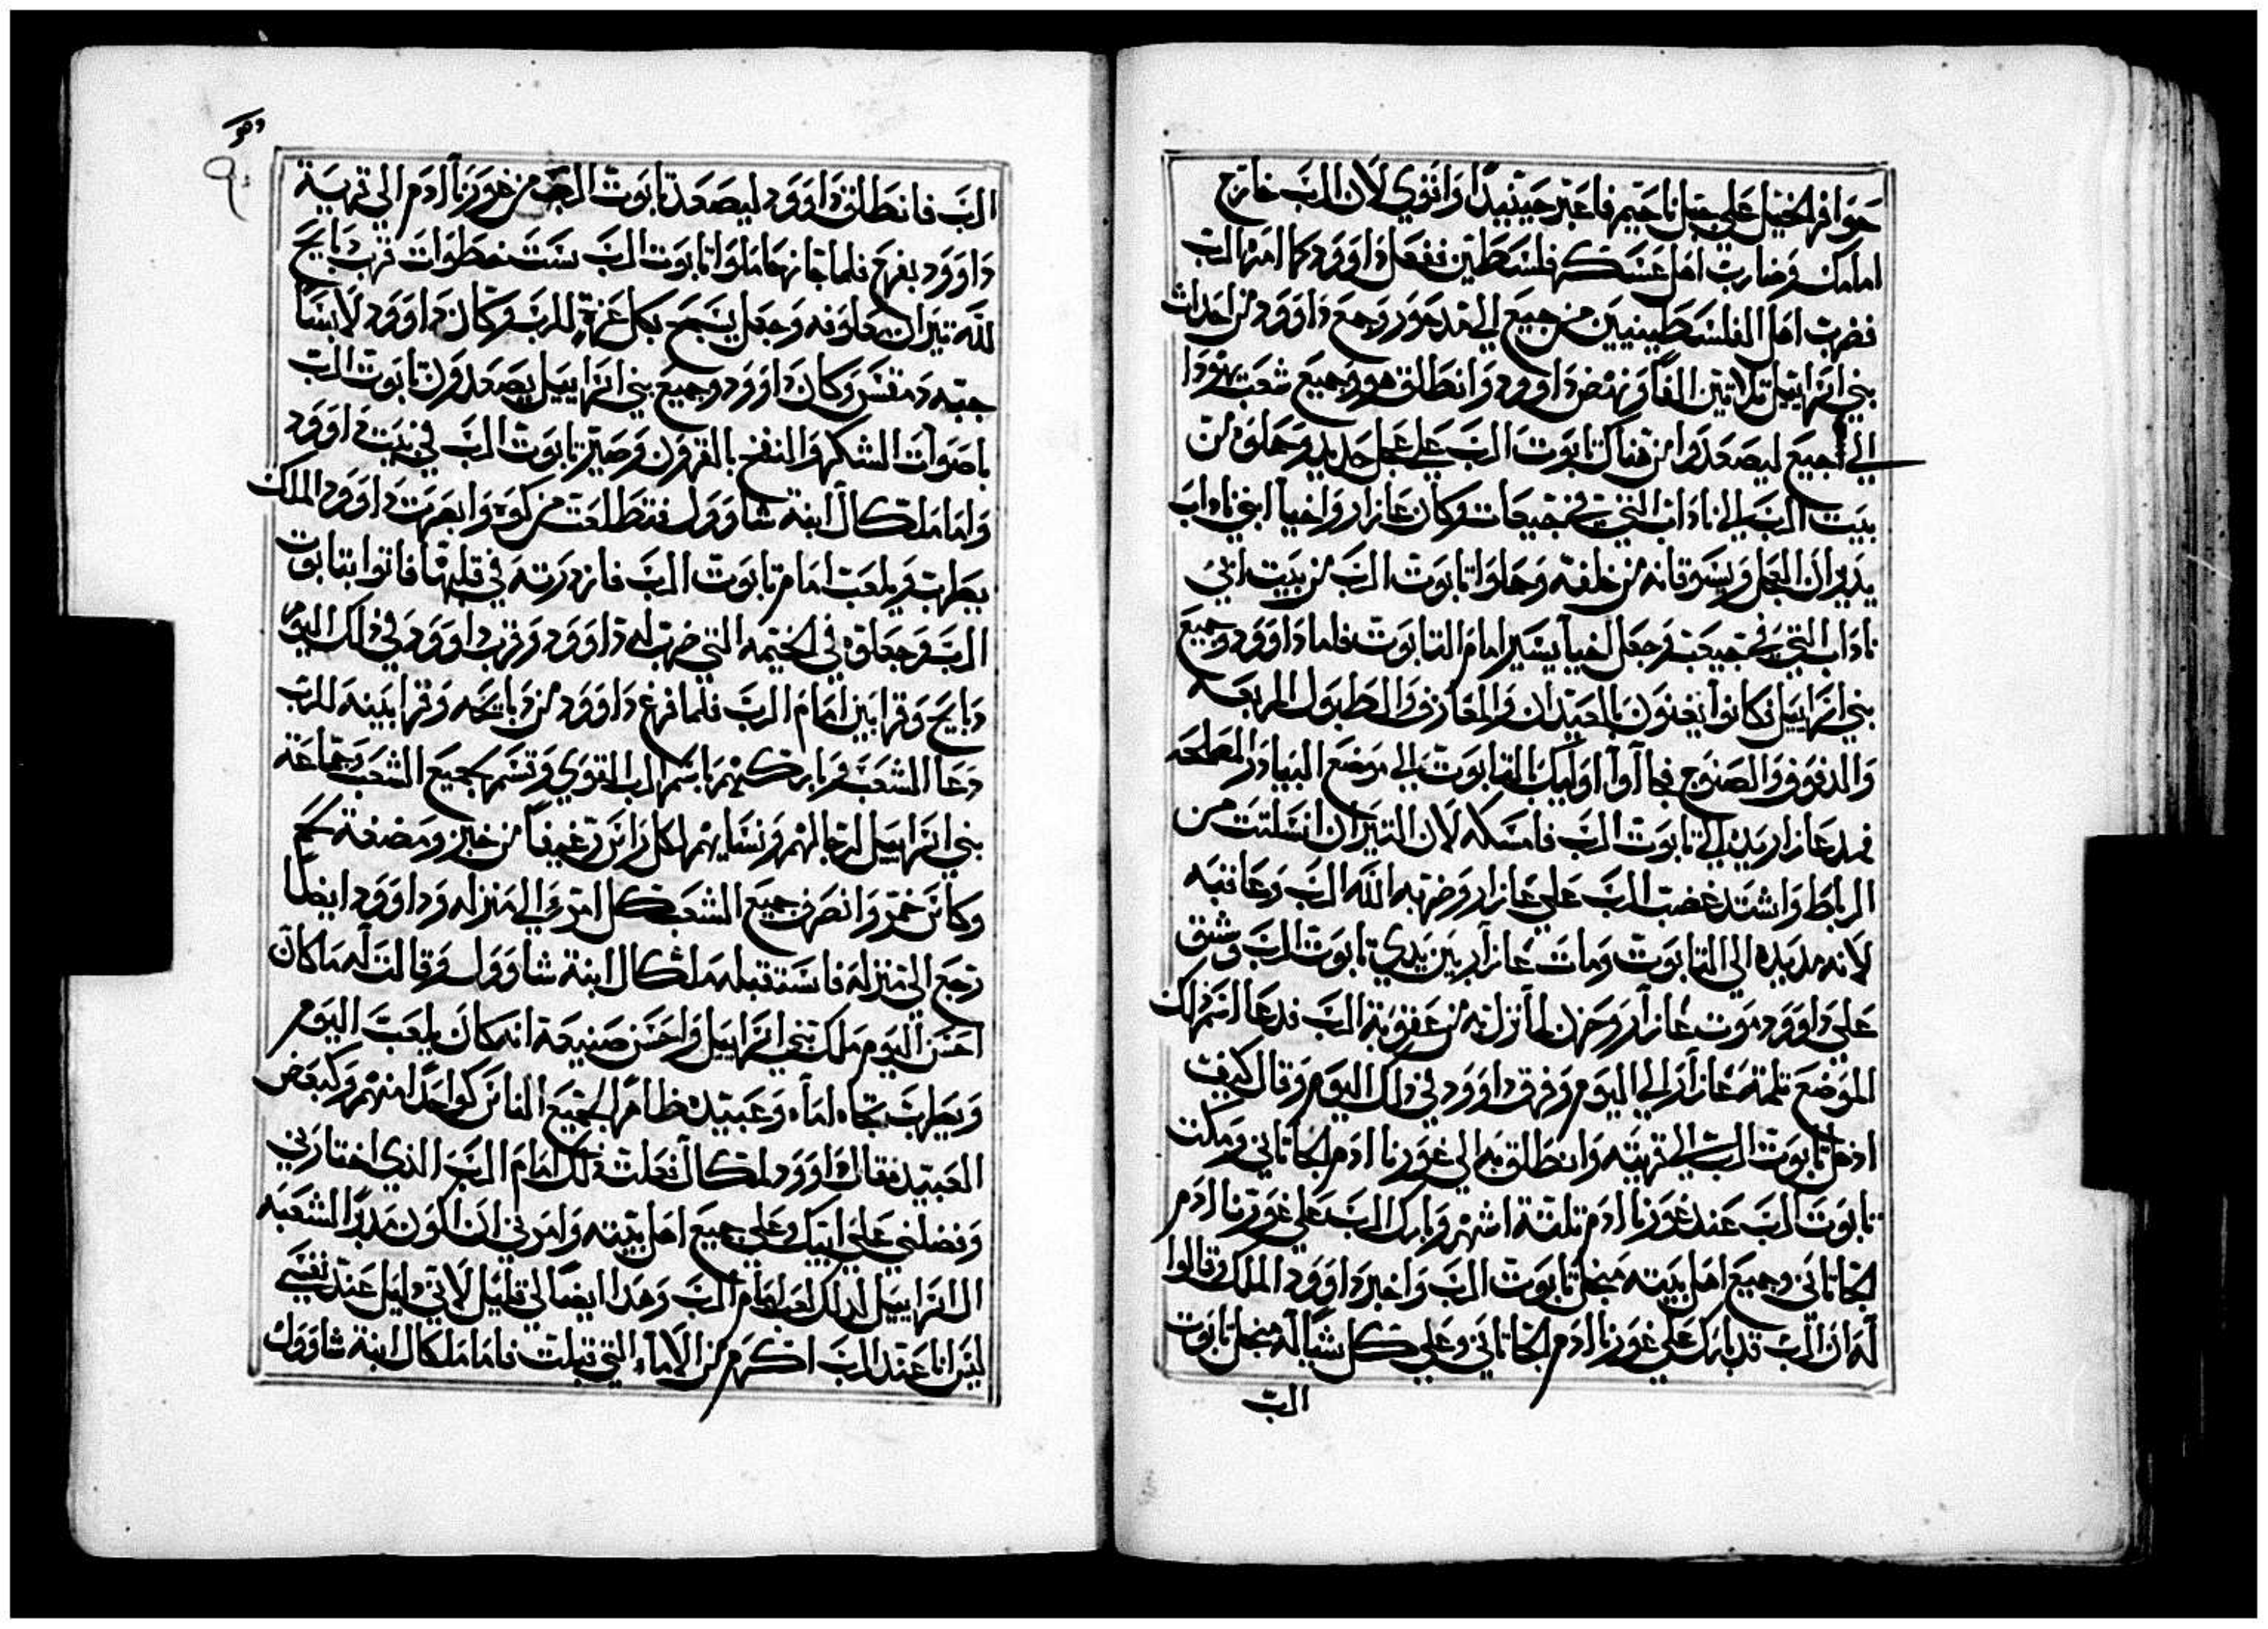 حوافر الخيل على جبل ناحيم فاعتبر حينيدا واتقوي لان الرب خارج
امامك وضارب اهل عسكر فلسطين ففعل داوود كما امره الرب
فضرب اهل الفلسطينيين من جبيع الي حد جزر وجمع داوود من احداث
بني اسراييل تلاتين الفا ونهض داوود وانطلق هو وجميع شعب يهودا
الي اجبيع ليصعدوا من هناك تابوت الرب علي عجل جديد وحملوه من
بيت الرب الي ناداب التي في جبيعات وكان عازار واخيا ابني ناداب
يديران العجل ويسوقانه من خلفه وحملوا تابوت الرب من بيت ابي
ناداب التي في جبيعة وجعل اخيا يسير امام التابوت فاما داوود وجميع
بني اسراييل فكانوا يغنون بالعيدان والمعازف والطبول المربعه
والدفوف والصنوج فجاآوا اوليك بالتابوت الي موضع البيادر المصلحه
فمد عازار يده الي تابوت الرب فامسكه لان التيران انسلتت من
الرباط واشتد غضب الرب علي عازار وضربه الله الرب وعاقبه
لانه مد يده الي التابوت ومات عازار بين يدي تابوت الرب وشق
علي داوود موت عازار وحزن لما نزل به من عقوبة الرب فدعا اسم ذلك
الموضع تلمة عازار الي اليوم وفرق داوود في ذلك اليوم وقال كيف
ادخل تابوت الرب الي قريته وانطلق به الي عوبرنا ادم الجاتاني ومكت
تابوت الرب عند عوبرنا ادم تلتة اشهر وبارك الرب علي عوبرنا ادم
الجاتاني وجميع اهل بيته من اجل تابوت الرب واخبر داوود الملك وقالوا
له ان الرب قد بارك علي عوبرنا ادم الجاتاني وعلي كل شيا له من اجل تابوت
الرب
وهو
٩٠
الرب فانطلق داوود ليصعد تابوت الرب من عوبرنا ادم الي قرية
داوود بفرح فلما جاز حاملوا تابوت الرب ست خطوات قرب دبايح
لله تيران معلوفه وجعل يسبح بكل عزة للرب وكان داوود لابسا
جبه دمقس وكان داوود وجميع بني اسراييل يصعدون تابوت الرب
باصوات الشكر والنفخ بالقرون وصير تابوت الرب في بيت داوود
واما ملكال ابنة شاوول فتطلعت من كوه وابصرت داوود الملك
يطرب ويلعب امام تابوت الرب فازدرته في قلبها فاتوا بتابوت
الرب وجعلوه في الخيمه التي ضرب له داوود وقرب داوود في ذلك اليوم
دبايح وقرابين امام الرب فلما فرغ داوود من دبايحه وقرابينه للرب
دعا الشعب وباركهم باسم الرب القوي وقسم لجميع الشعب وجماعة
بني اسراييل لرجالهم ونسايهم لكل راس رغيفا من خبز ومضغة لحم
وكاس خمر وانصرف جميع الشعب كل امرء الي منزله وداوود ايضا
رجع الي منزله فاستقبله ملكال ابنة شاوول وقالت له ما كان
احسن اليوم ملك بني اسراييل واحسن صنيعه انه كان يلعب اليوم
ويطرب تجاه اماء وعبيده ظاهرا لجميع الناس كواحدا منهم وكبعض
العبيد فقال داوود لملكال فعلت ذلك امام الرب الذي اختارني
وفضلني علي ابيك وعلي جميع اهل بيته وامرني ان اكون مدبرا لشعبه
ال اسراييل لذلك لعبت امام الرب وهذا ايضا لي قليل لاني دليل عند نفسي
ليس انا عند الرب اكرم من الاماء التي قبلت فاما ملكال ابنة شاوول